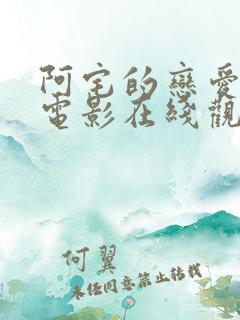 阿宅的戀愛
電影在綫觀
何翼
未经同意禁止转载